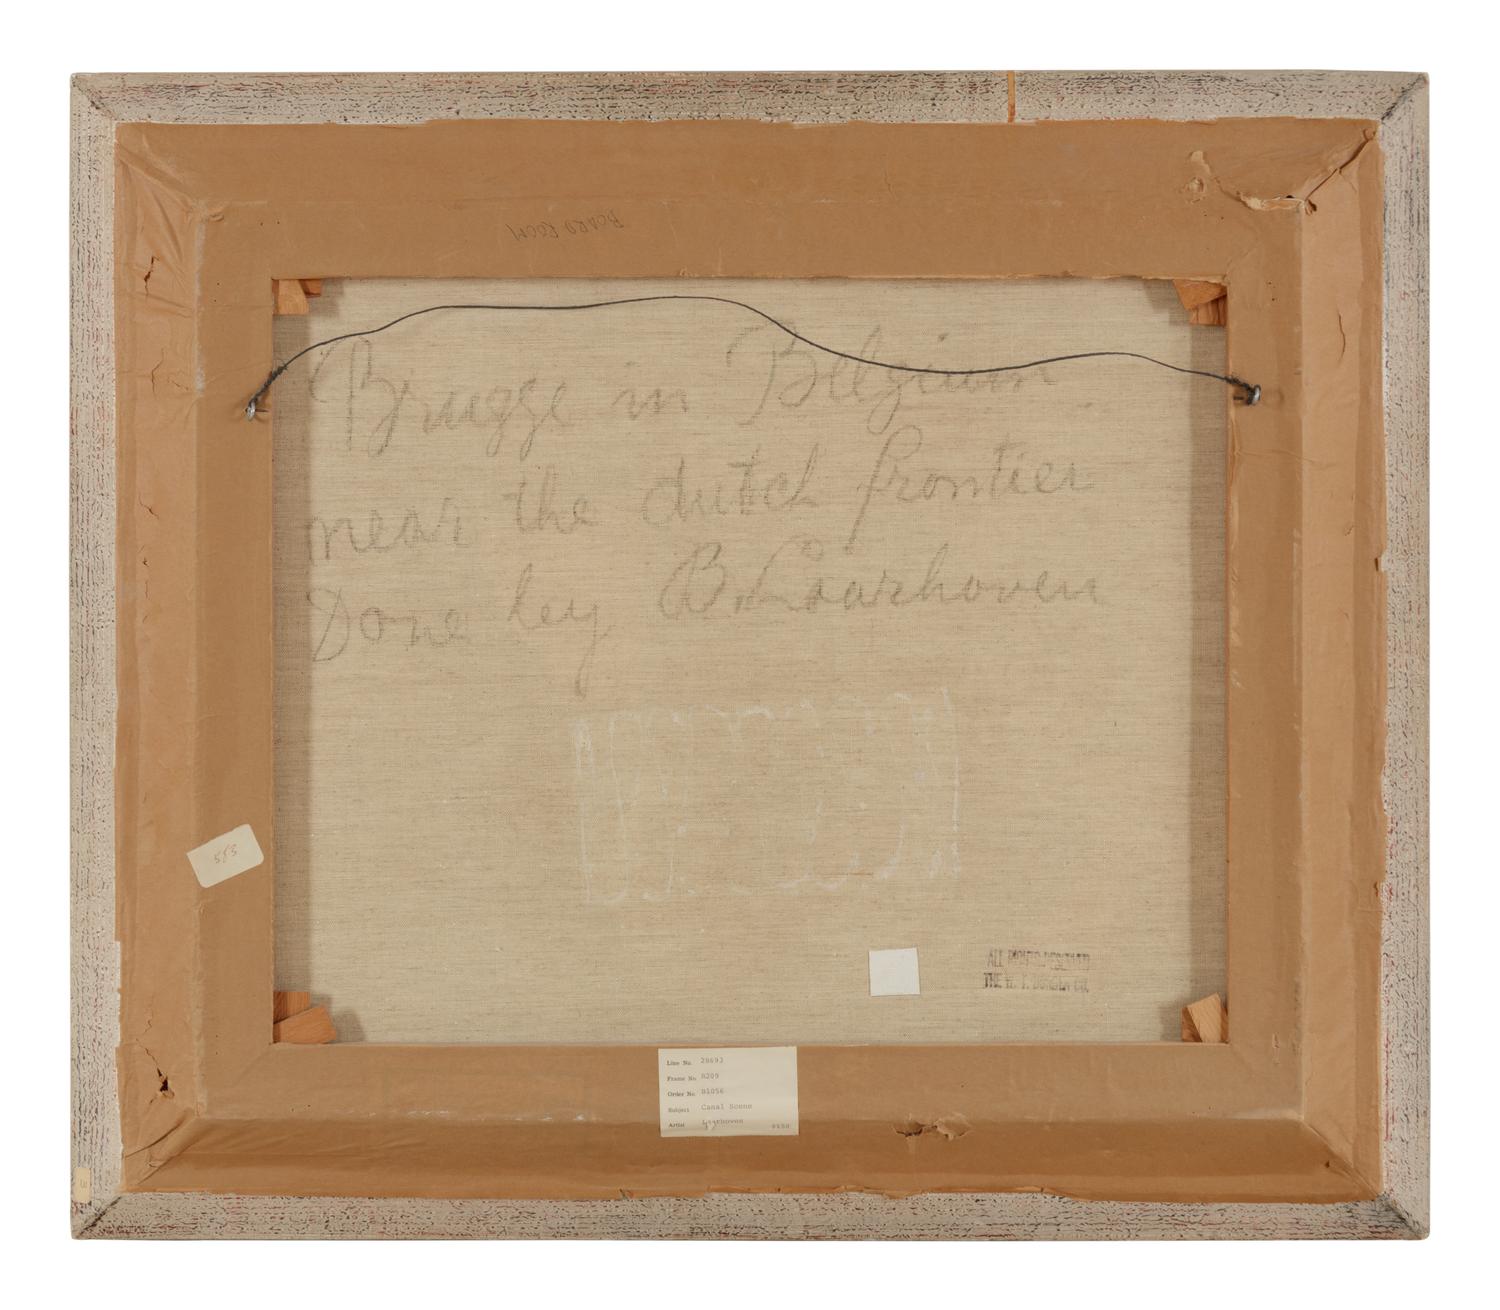 BOARD ROOM
Brugge in Belgium
near the dutch frontier
Done by B. Laarhoven
583
ALL RIGHTS RESERVED
THE
CO.
Line No. 28693
Frame No R209
Order No. 81056
Subject Canal Scene
Artist Laarhoven